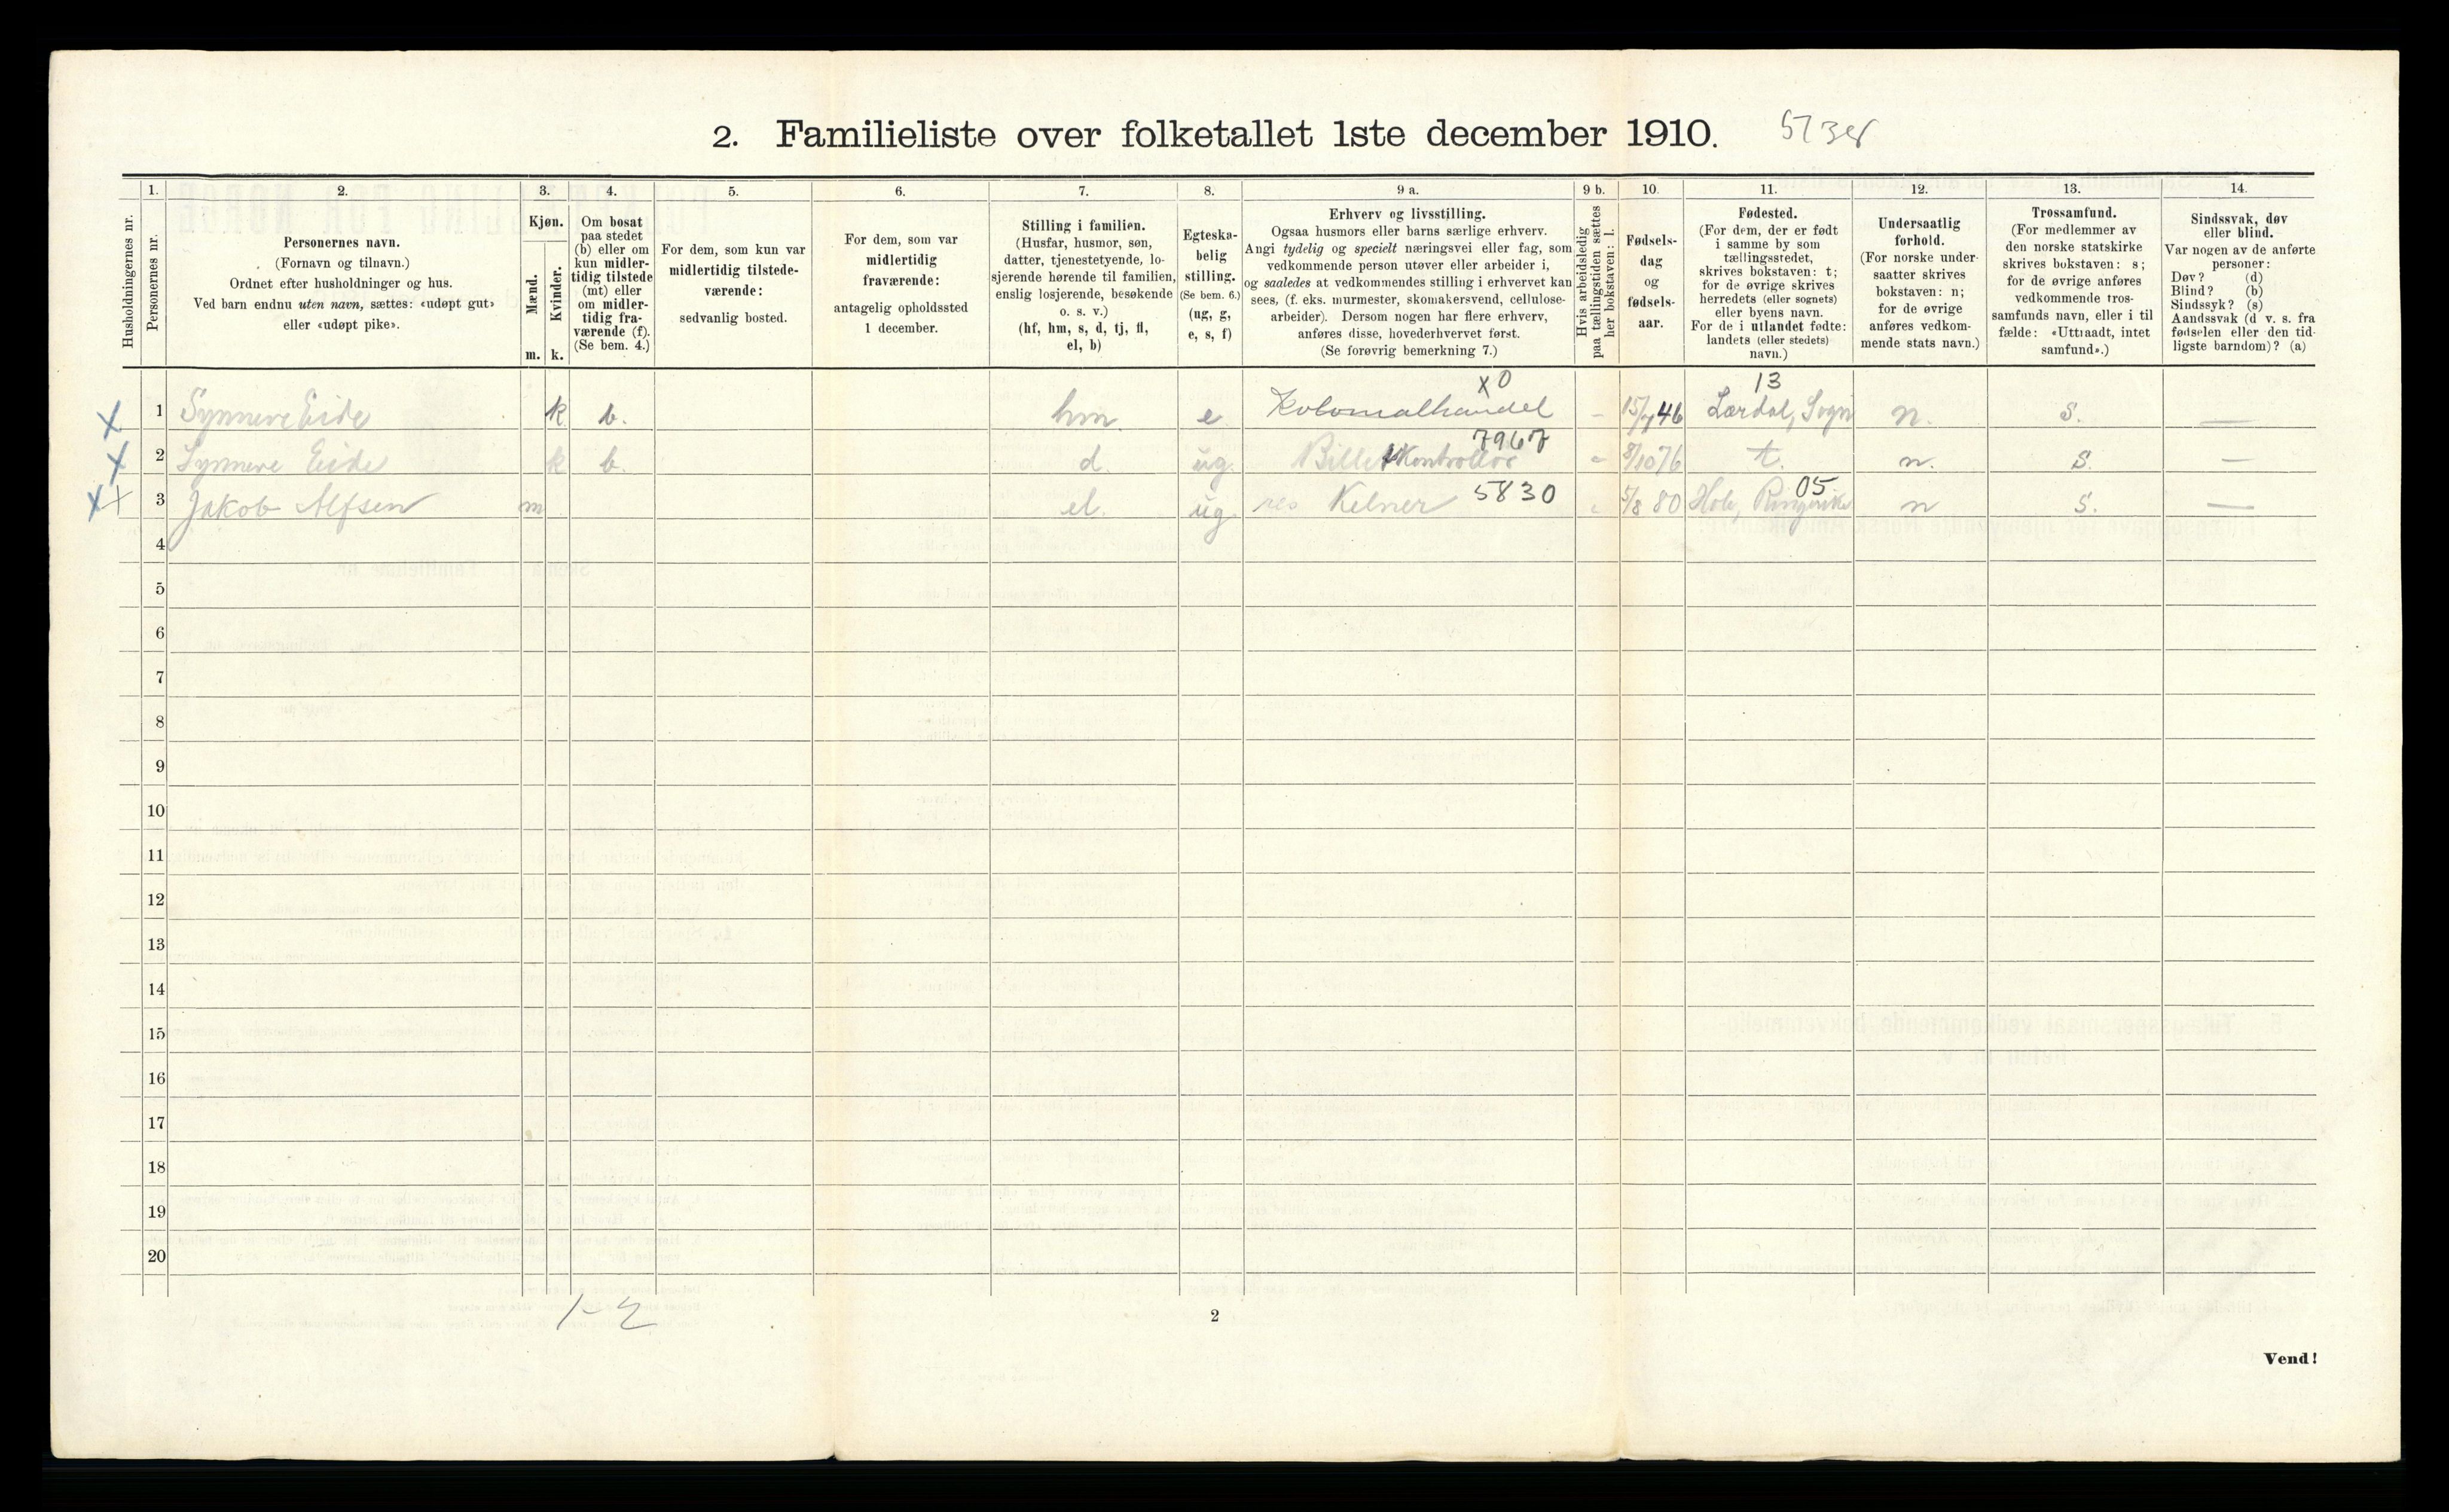 2. Familieliste over folketallet 1ste december 1910.
Husholdningernes nr.
1.
Personernes nr.
2.
Personernes navn.
(Fornavn og tilnavn.)
Ordnet efter husholdninger og hus.
Ved barn endnu uten navn, sættes: «udøpt gut»
eller «udøpt pike».
3.
Kjøn.
Mænd.
Kvinder.
m. k.
4.
Om bosat
paa stedet
(b) eller om
kun midler-
tidig tilstede
(mt) eller
om midler-
tidig fra-
værende (f).
(Se bem. 4.)
5.
For dem, som kun var
midlertidig tilstede-
værende:
sedvanlig bosted.
6.
For dem, som var
midlertidig
fraværende:
antagelig opholdssted
1 december.
7.
Stilling i familien.
(Husfar, husmor, søn,
datter, tjenestetyende, lo-
sjerende hørende til familien,
enslig losjerende, besøkende
o. s. v.)
(hf, hm, s, d, tj, fl,
el, b)
8.
Egteska-
belig
stilling.
(Se bem. 6.)
(ug, g,
e, s, f)
9 a.
Erhverv og livsstilling.
Ogsaa husmors eller barns særlige erhverv.
Angi tydelig og specielt næringsvei eller fag, som
vedkommende person utøver eller arbeider i,
og saaledes at vedkommendes stilling i erhvervet kan
sees, (f. eks. murmester, skomakersvend, cellulose-
arbeider). Dersom nogen har flere erhverv,
anføres disse, hovederhvervet først.
(Se forøvrig bemerkning 7.)
9 b.
Hvis arbeidsledig
paa tællingstiden sættes
her bokstaven: l.
10.
Fødsels-
dag
og
fødsels-
aar.
11.
Fødested.
(For dem, der er født
i samme by som
tællingsstedet,
skrives bokstaven: t;
for de øvrige skrives
herredets (eller sognets)
eller byens navn.
For de i utlandet fødte:
landets (eller stedets)
navn.)
12.
Undersaatlig
forhold.
(For norske under-
saatter skrives
bokstaven: n;
for de øvrige
anføres vedkom-
mende stats navn.)
13.
Trossamfund.
(For medlemmer av
den norske statskirke
skrives bokstaven: s;
for de øvrige anføres
vedkommende tros-
samfunds navn, eller i til-
fælde: «Uttraadt, intet
samfund».)
14.
Sindssvak, døv
eller blind.
Var nogen av de anførte
personer:
Døv? (d)
Blind? (b)
Sindssyk? (s)
Aandssvak (d v. s. fra
fødselen eller den tid-
ligste barndom)? (a)
x 0 13
X 1 Synneve Eide k b. hm e Kolonialhandel - 15/7 46 Lærdal, Sogn n. s. —
7967
X 2 Synneve Eide k b. d. ug. Billetkontrollør - 8/10 76 t. n. s. —
5830 05
XX 3 Jakob Alfsen m el. ug res Kelner - 5/8 80 Hole, Ringerike n s. —
4
5
6
7
8
9
10
11
12
13
14
15
16
17
18
19
20
1-2
2
Vend!